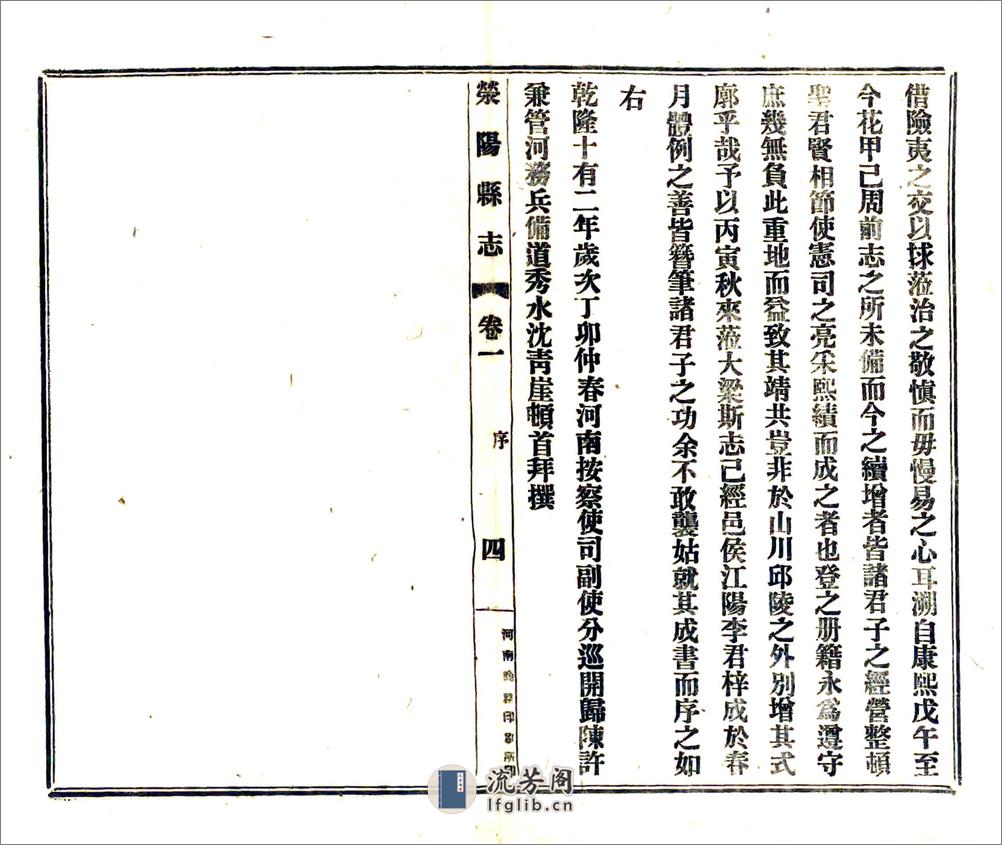 借險夷之交以球蒞治之敬慎而毋慢易之心耳溯自康熙戊午至
今花甲已周前志之所未備而今之續增者皆諸君子之經營整頓
聖君賢相節使憲司之亮采熙績而成之者也登之册籍永爲遵守
庶幾無負此重地而益致其靖共豈非於山川邱陵之外別增其式
廓乎哉予以丙寅秋來蒞大梁斯志已經邑侯江陽李君梓成於春
月體例之善皆簪筆諸君子之功余不敢襲姑就其成書而序之如
右
乾隆十有二年歲次丁卯仲春河南按察使司副使分巡開歸陳許
兼管河務兵備道秀水沈青崖頓首拜撰
滎陽縣志 卷一 序 四
河南 印 所
流芳阁
lfglib.cn